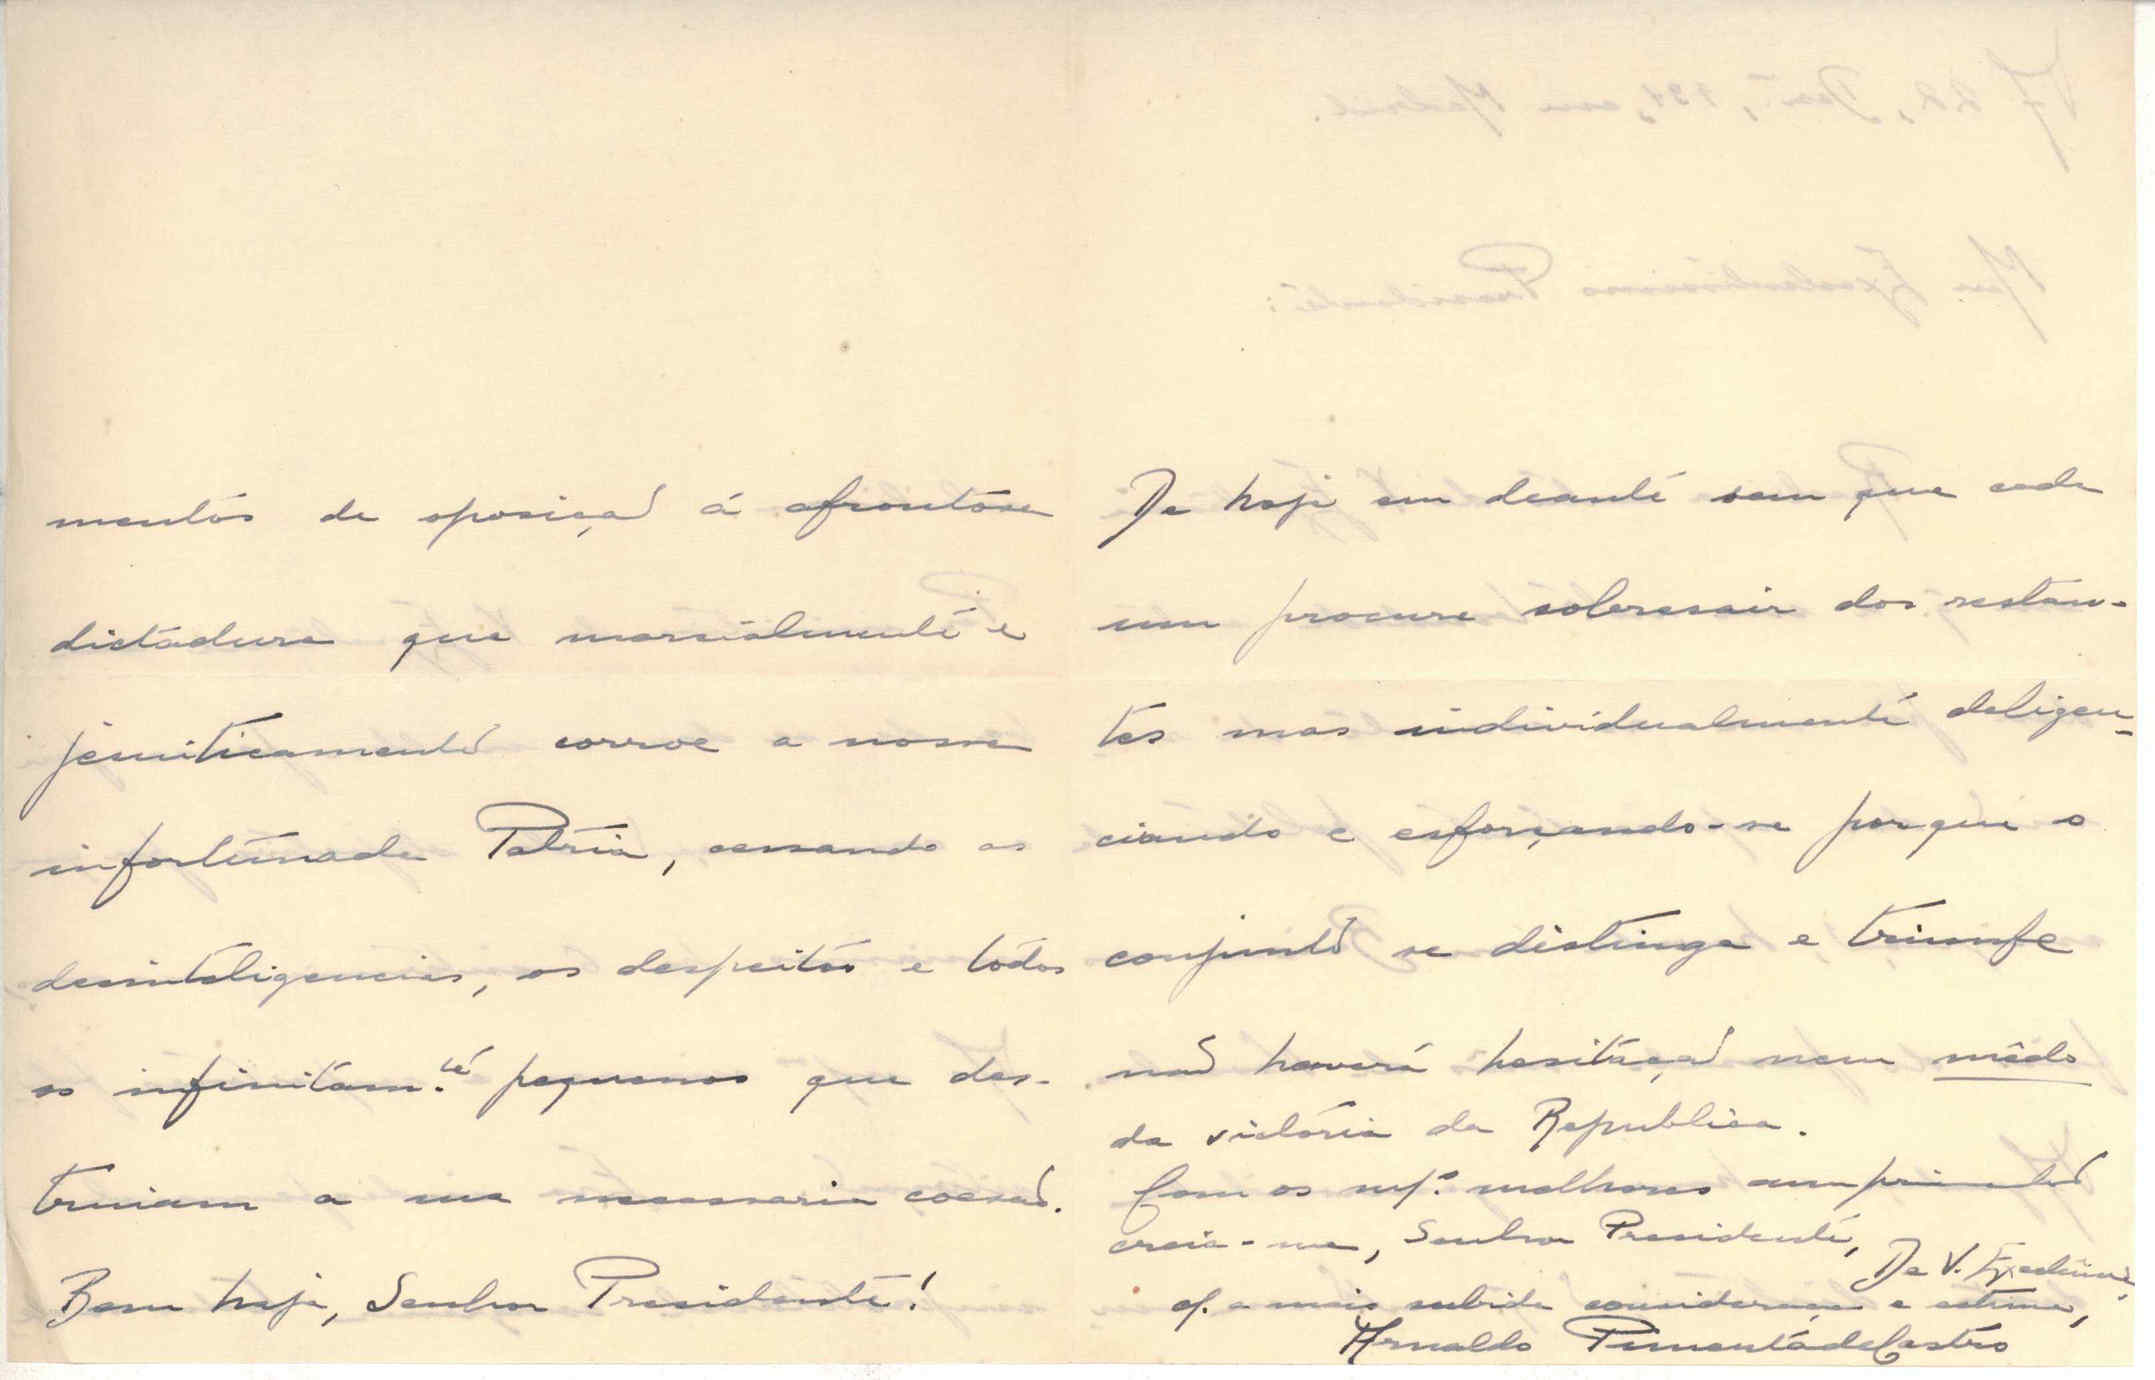 mentos de oposição á afrontósa
dictadura que marcialmente e
jesuiticamente corroe a nossa
infortunada Patria, cessando as
desinteligencias, os despeitos e todos
os infinitam.te pequenos que des-
truiam a sua necessaria coesão.
Bem haja, Senhor Presidente!
De hoje em deante sem que cada
um procure sobresair dos restan-
tes mas individualmente deligen-
ciando e esforçando-se por que o
conjunto se distinga e triunfe
não haverá hesitação nem mêdo
da victória da Republica.
Com os ms. melhores cumprimentos
creia-me, Senhor Presidente,
De V. Excelencia,
c. a mais subida consideração e estima,
Arnaldo Pimenta de Castro